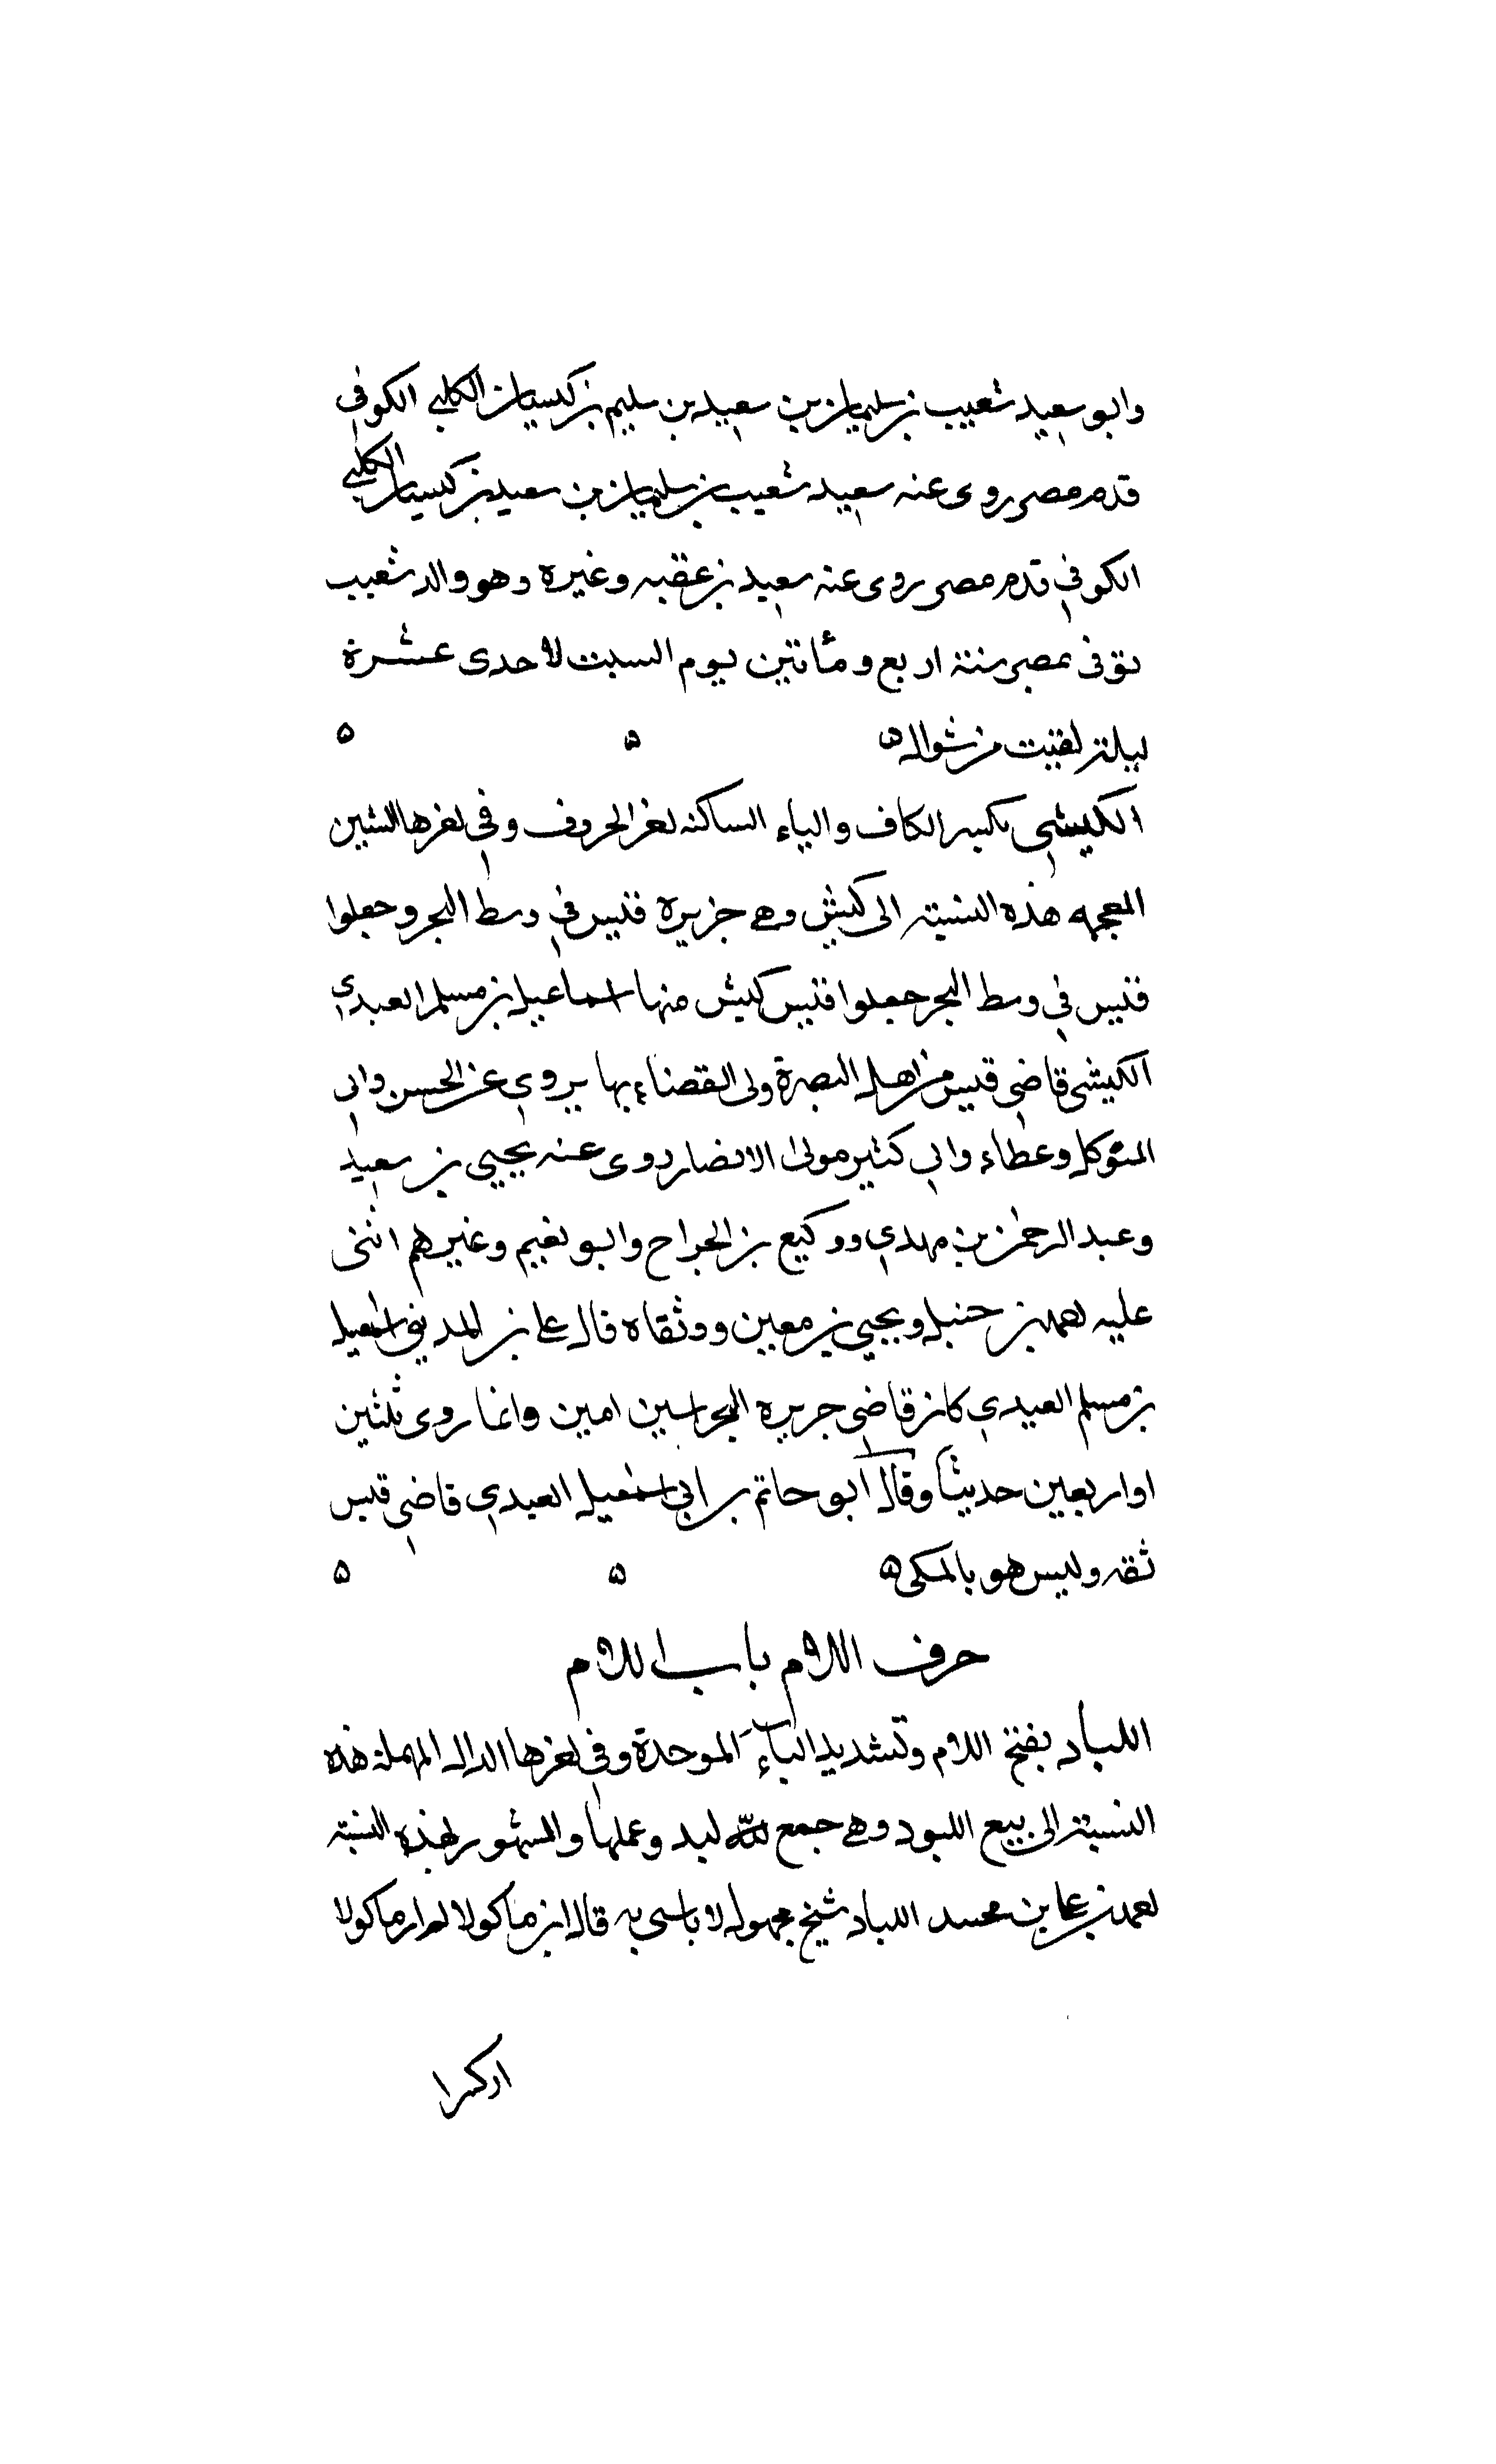 وابو سعيد شعيب بن سليمان بن سعيد بن سليم بن كيسان الكلبي الكوفي
قدم مصر روى عنه سعيد شعيب بن سليمان بن سعيد بن كيسان الكلبي
الكوفي قدم مصر روى عنه سعيد بن عقبه وغيره وهو والد شعيب
توفى بمصر سنة اربع ومأتين يوم السبت لاحدى عشرة
ليلة بقيت من شوال ه ه ه
الكيشي بكسر الكاف والياء الساكنه اخر الحروف وفي اخرها الشين
المعجمه هذه النسبة الى كيش وهي جزيرة قيس في وسط البحر وجعلوا
قيس في وسط البحر جعلوا قيس كيش منها اسماعيل بن مسلم العبدي
الكيشي قاضي قيس من اهل البصرة ولى القضاء بها يروي عن الحسن وابي
المتوكل وعطاء وابي كثير مولى الانصار روى عنه يحيي بن سعيد
وعبد الرحمن بن مهدي ووكيع بن الجراح وابو نعيم وغيرهم اثنى
عليه احمد بن حنبل ويحيي بن معين ووثقاه قال علي بن المديني اسمعيل
بن مسلم العبدي كان قاضي جزيره امين وانما روى ثلثين
او اربعين حديثا وقال ابو حاتم بن ابي اسمعيل العبدي قاضي قيس
ثقه وليس هو بالمكي ه ه ه
حرف اللام باب اللام
اللباد بفتح اللام وتشديد الباء الموحدة وفي اخرها الدال المهملة هذه
النسبة الى بيع اللبود وهي جمع لبد وعملها والمشهور بهذه النسبة
احمد بن علي بن محمد اللباد شيخ مجهول لا باس به قال ابن ماكولا ماكولا